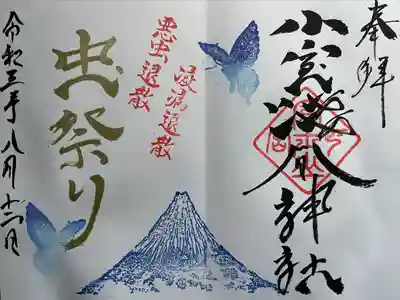 奉拝
小室浅間神社
疫病退散
悪虫退散
虫祭り
令和三年八月十二日